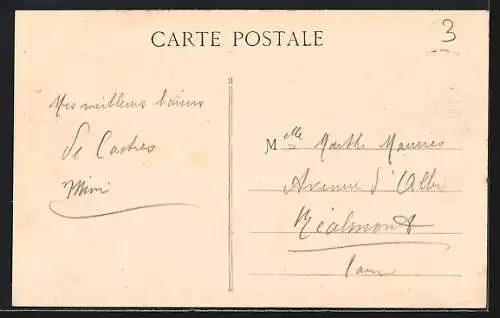 CARTE POSTALE
3
Mes meilleurs baisers
de Castres
Mimi
Melle Marthe
Avenue d'Albi
Réalmont
Tarn